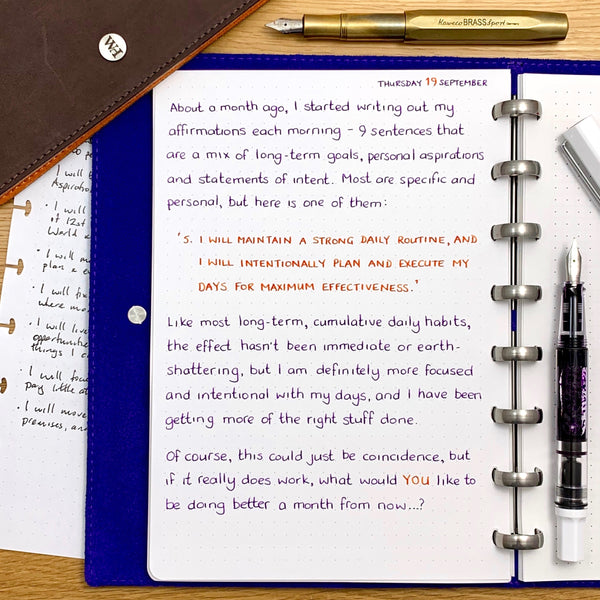 Kaweco BRASS Sport
WH
THURSDAY 19 SEPTEMBER
About a month ago, I started writing out my
affirmations each morning - 9 sentences that
are a mix of long-term goals, personal aspirations
and statements of intent. Most are specific and
personal, but here is one of them:
'5. I WILL MAINTAIN A STRONG DAILY ROUTINE, AND
I WILL INTENTIONALLY PLAN AND EXECUTE MY
DAYS FOR MAXIMUM EFFECTIVENESS.'
Like most long-term, cumulative daily habits,
the effect hasn't been immediate or earth-
shattering, but I am definitely more focused
and intentional with my days, and I have been
getting more of the right stuff done.
Of course, this could just be coincidence, but
if it really does work, what would YOU like to
be doing better a month from now...?
I will
Aspiration
• I will
if 12st
World
• I will
plan &
• I will
where
• I will
opportunities
things I
• I will
pay little
• I will move
premises, and